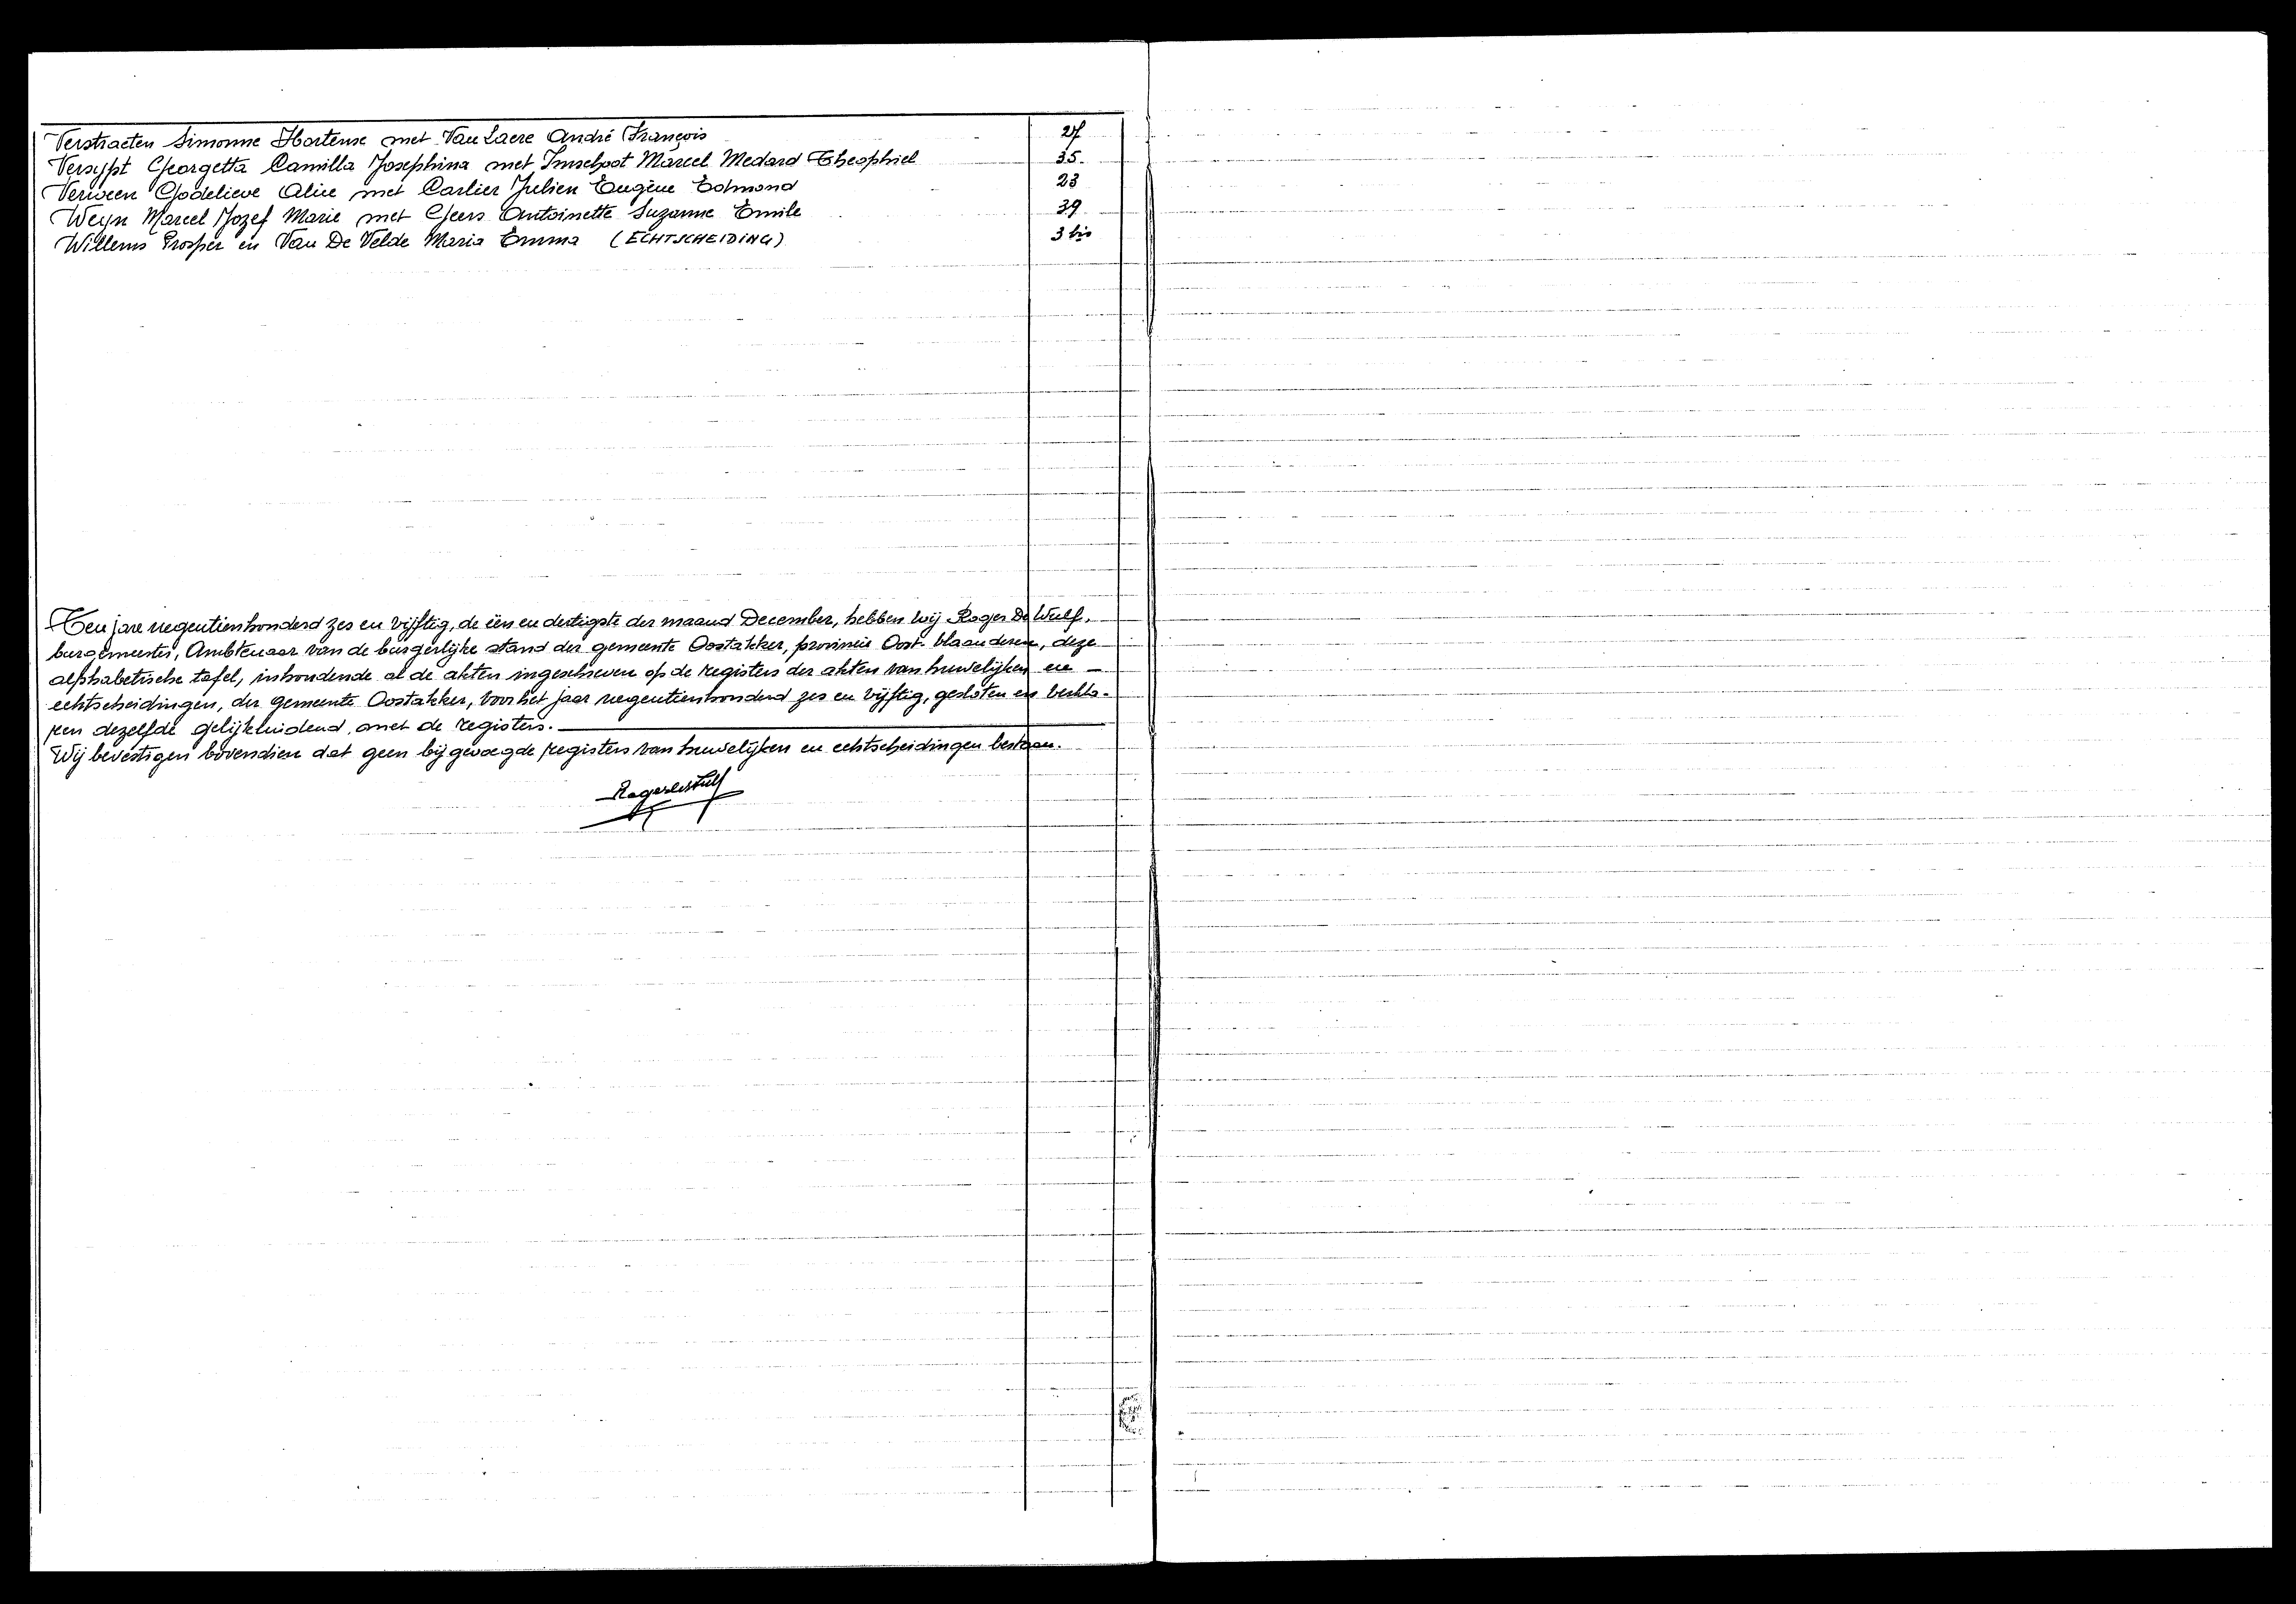 Verstraeten Simonne Hortense met Van Laere André François 27
Versypt Georgetta Camilla Josephina met Imschoot Marcel Medard Theophiel 35.
Verween Godelieve Alice met Carlier Julien Eugène Edmond 23
Weyn Marcel Jozef Marie met Geers Antoinette Suzanne Emile 39
Willems Prosper en Van De Velde Maria Emma (ECHTSCHEIDING) 3 bis
Ten jare negentienhonderd zes en vijftig, de één en dertigste der maand December, hebben wij Roger De Wulf,
burgemeester, Ambtenaar van de burgerlijke stand der gemeente Oostakker, provincie Oost-vlaanderen, deze
alphabetische tafel, inhoudende al de akten ingeschreven op de registers der akten van huwelijken en
echtscheidingen, der gemeente Oostakker, voor het jaar negentienhonderd zes en vijftig, gesloten en verkla-
ren dezelfde gelijkluidend met de registers.
Wij bevestigen bovendien dat geen bijgevoegde registers van huwelijken en echtscheidingen bestaan.
Roger de Wulf